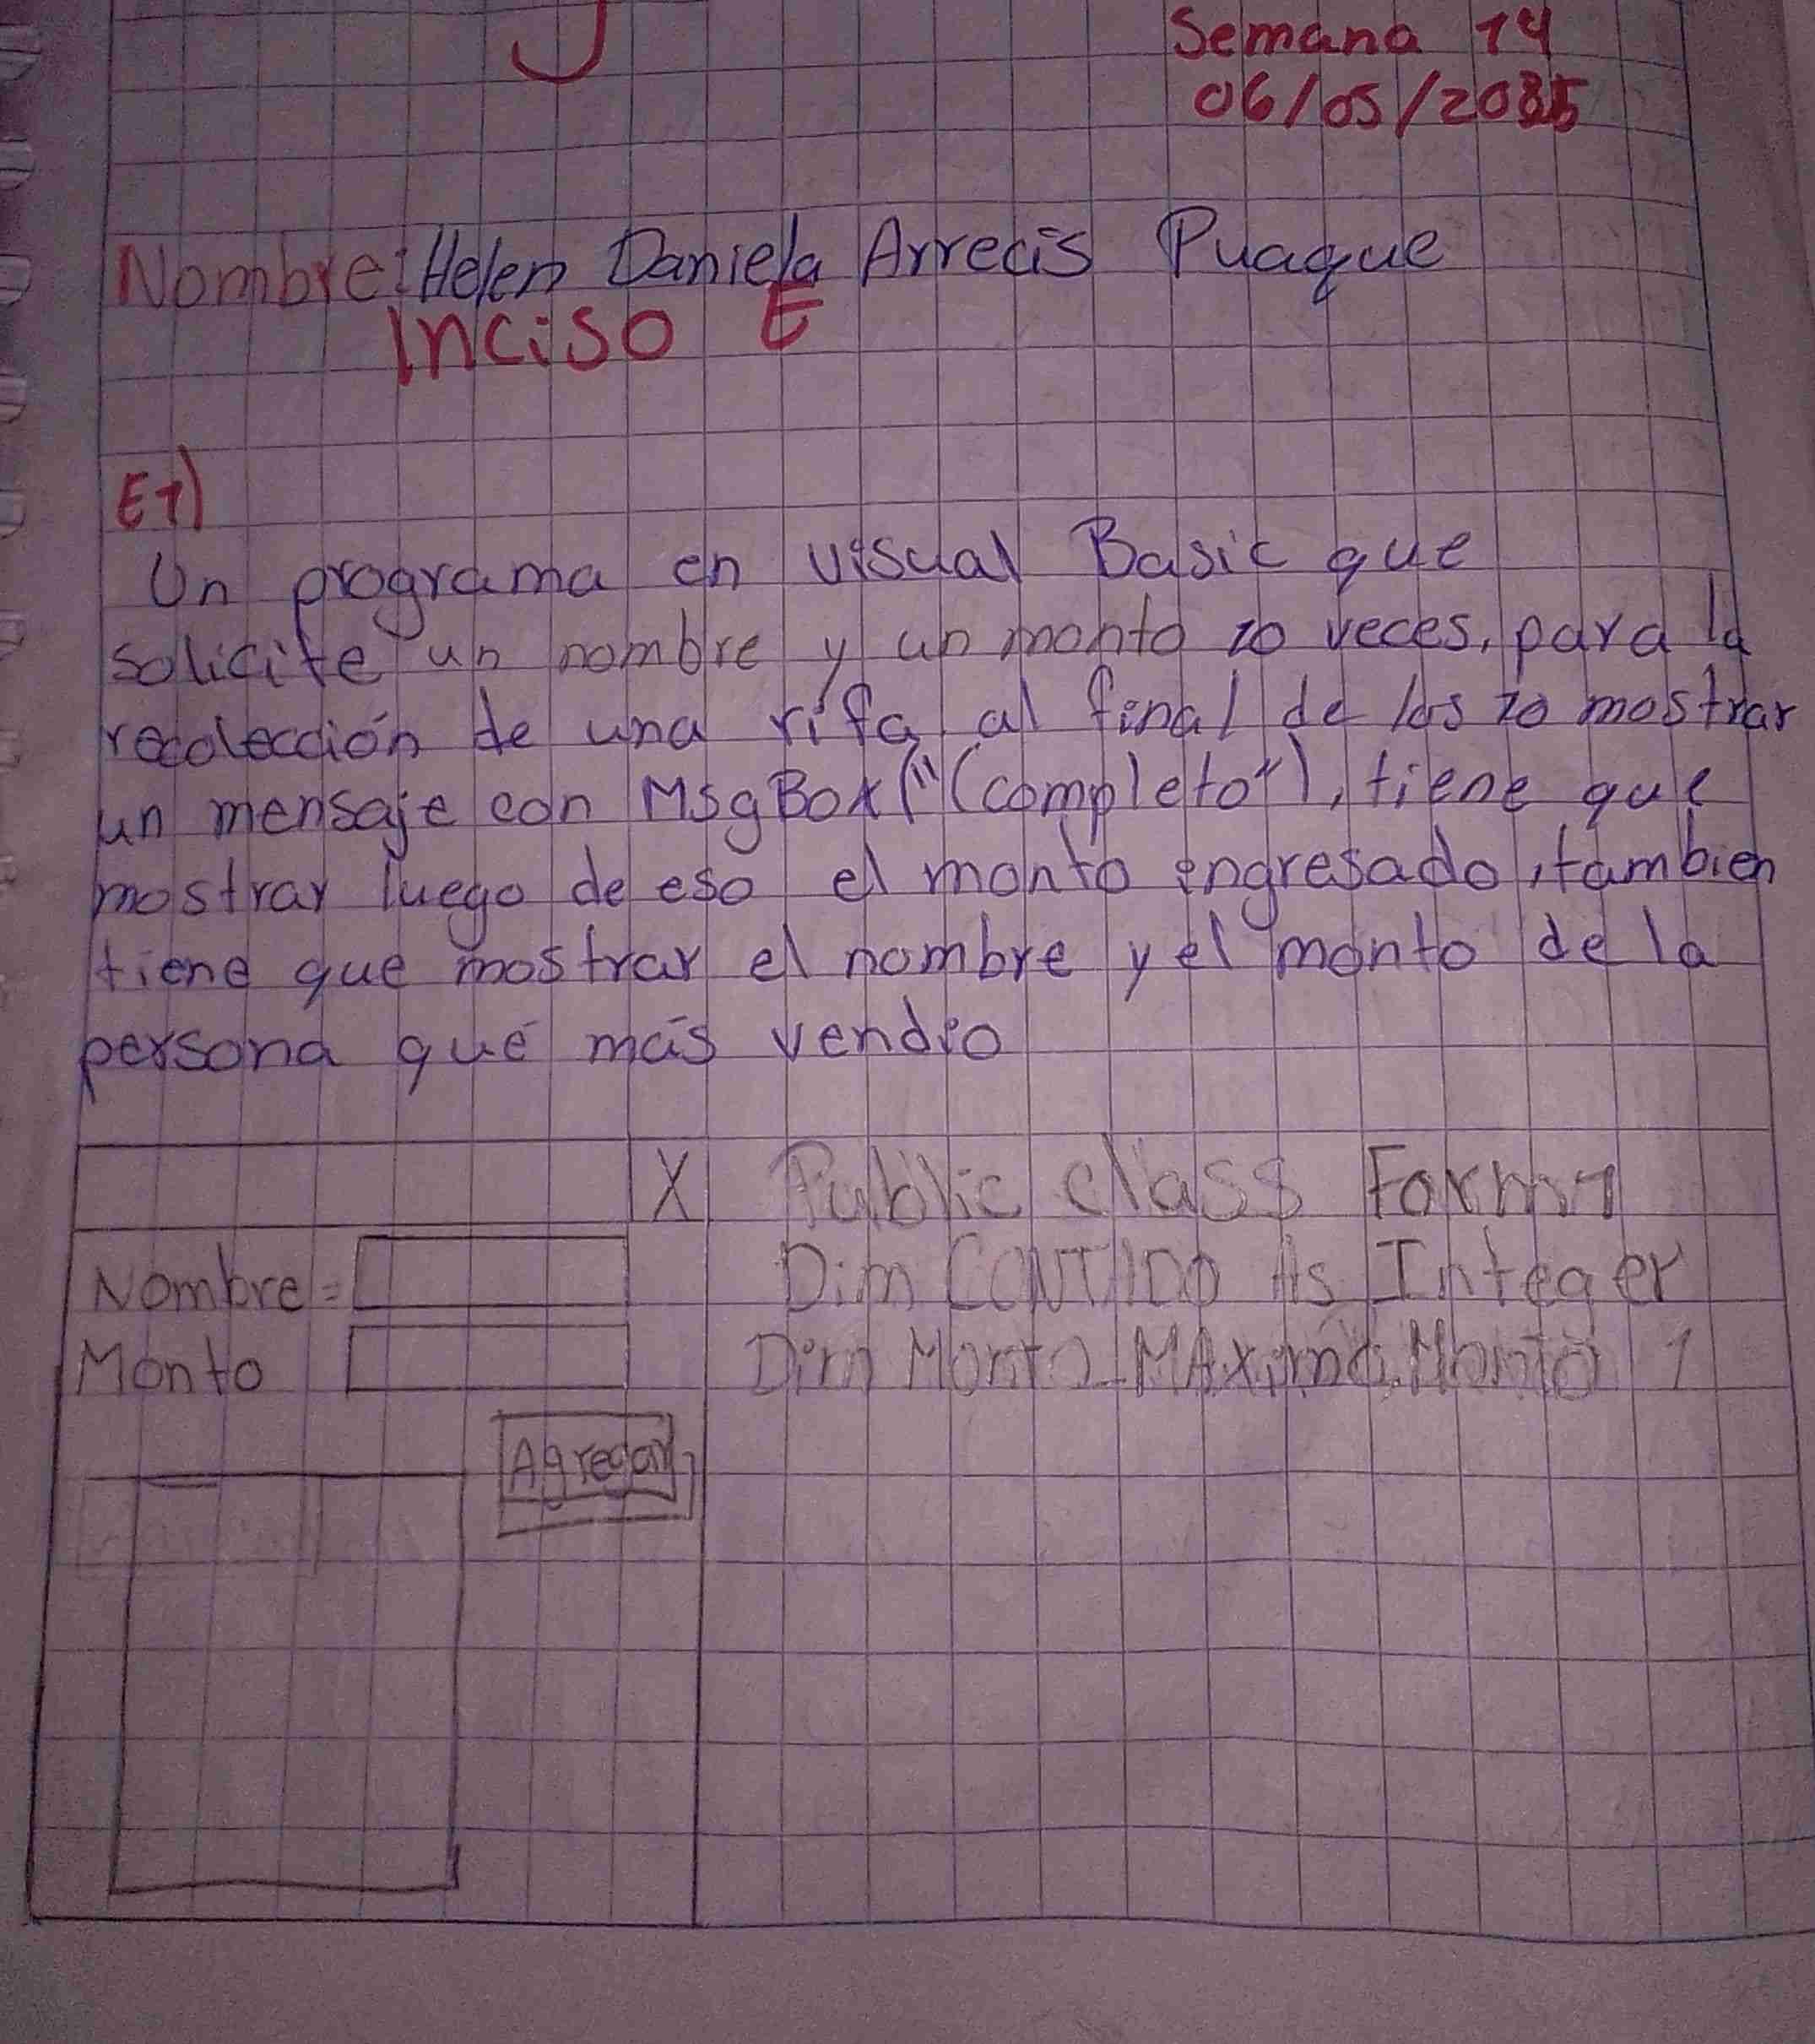 Semana 14
06/05/2025
Nombre: Helen Daniela Arrecis Puaque
Inciso E
E1)
Un programa en visual Basic que
solicite un nombre y un monto 10 veces, para la
recolección de una rifa al final de los 10 mostrar
un mensaje con MsgBox("(completo"), tiene que
mostrar luego de eso el monto ingresado, tambien
tiene que mostrar el nombre y el monto de la
persona que más vendio
X
Nombre=
Monto
Agregar
Public class Form1
Dim As Integer
Dim Monto_MAximo, Monto 1